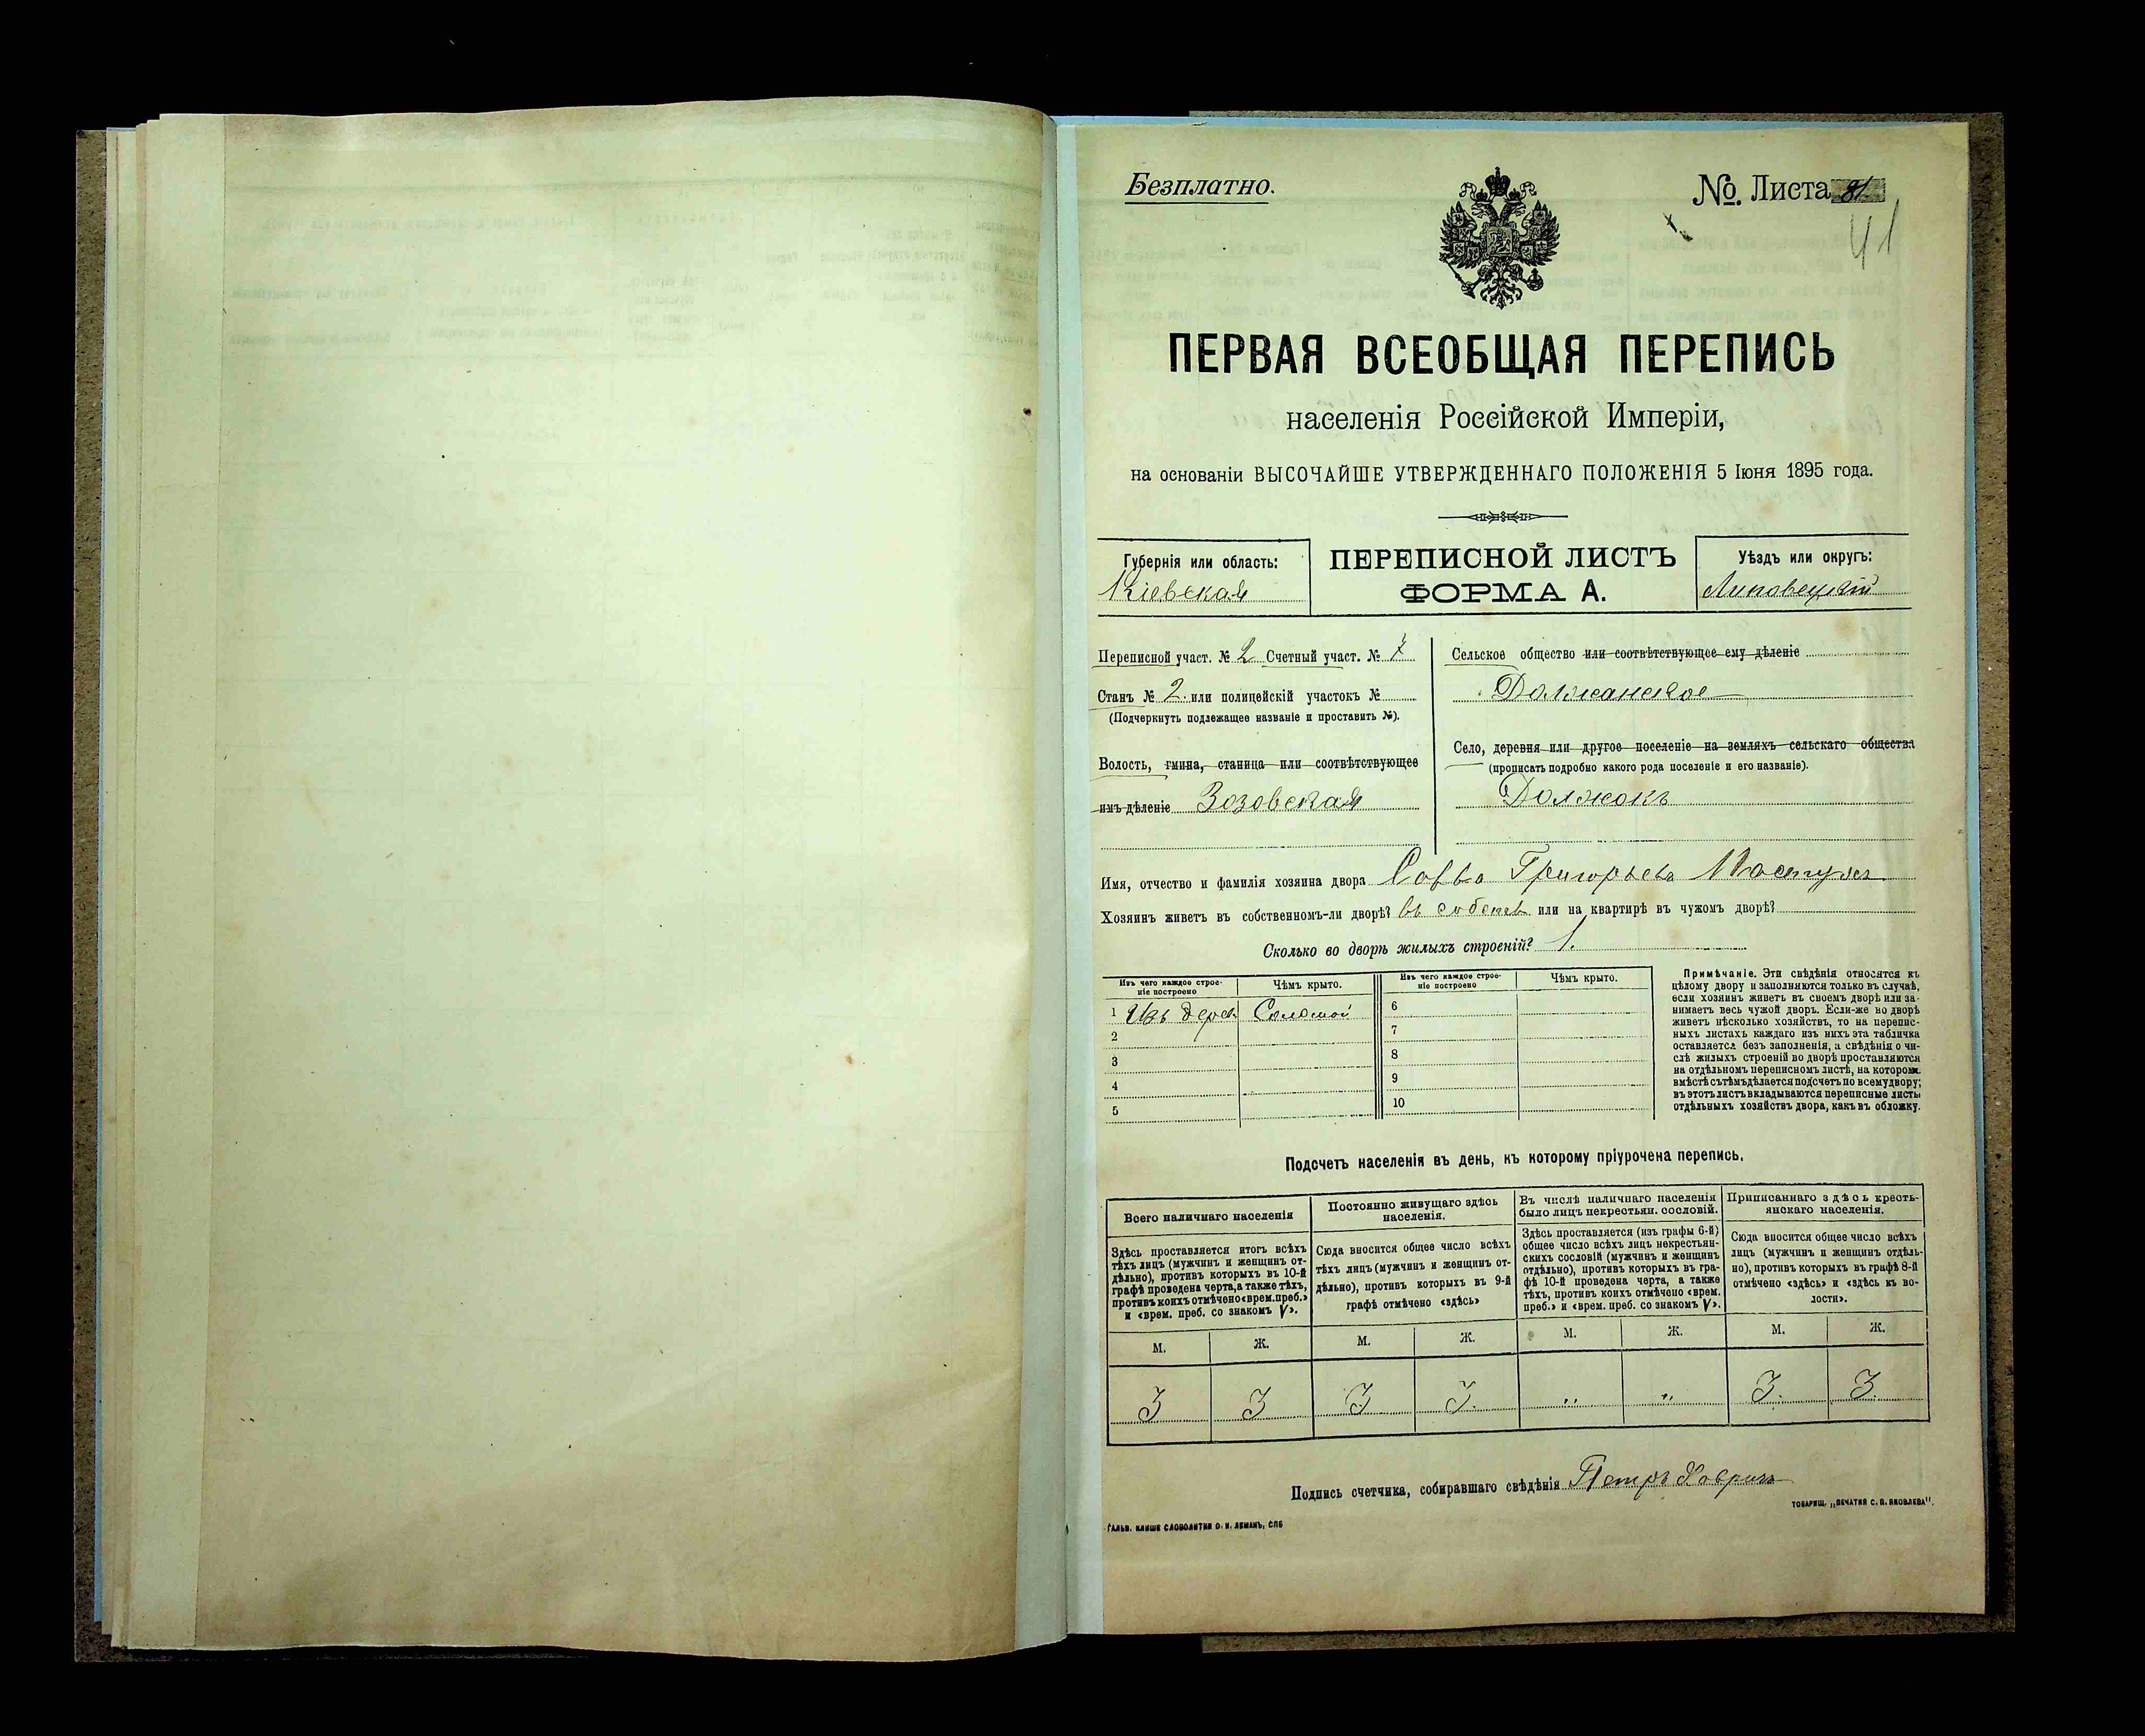 Безплатно.
№. Листа 81
41
ПЕРВАЯ ВСЕОБЩАЯ ПЕРЕПИСЬ
населенія Россійской Имперіи,
на основаніи ВЫСОЧАЙШЕ УТВЕРЖДЕННАГО ПОЛОЖЕНІЯ 5 Іюня 1895 года.
Губернія или область:
Кіевская
ПЕРЕПИСНОЙ ЛИСТЪ
ФОРМА А.
Уѣздъ или округъ:
Липовецкій
Переписной участ. № 2 Счетный участ. № 7
Станъ № 2. или полицейскій участокъ №
(Подчеркнуть подлежащее названіе и проставить №).
Волость, гмина, станица или соотвѣтствующее
имъ дѣленіе Зозовская
Сельское общество или соотвѣтствующее ему дѣленіе
Должанское
Село, деревня или другое поселеніе на земляхъ сельскаго общества
(прописать подробно какого рода поселеніе и его названіе).
Должокъ
Имя, отчество и фамилія хозяина двора Савва Григорьевъ
Хозяинъ живетъ въ собственномъ-ли дворѣ? въ собств или на квартирѣ въ чужомъ дворѣ?
Сколько во дворѣ жилыхъ строеній? 1.
Изъ чего каждое строе-
ніе построено
Чѣмъ крыто.
Изъ чего каждое строе-
ніе построено
Чѣмъ крыто.
1 Изъ дерев. Соломой
2
3
4
5
6
7
8
9
10
Примѣчаніе. Эти свѣдѣнія относятся къ
цѣлому двору и заполняются только въ случаѣ,
если хозяинъ живетъ въ своемъ дворѣ или за-
нимаетъ весь чужой дворъ. Если-же во дворѣ
живетъ нѣсколько хозяйствъ, то на перепис-
ныхъ листахъ каждаго изъ нихъ эта табличка
оставляется безъ заполненія, а свѣдѣнія о чи-
слѣ жилыхъ строеній во дворѣ проставляются
на отдѣльномъ переписномъ листѣ, на которомъ
вмѣстѣ съ тѣмъ дѣлается подсчетъ по всему двору;
въ этотъ листъ вкладываются переписные листы
отдѣльныхъ хозяйствъ двора, какъ въ обложку.
Подсчетъ населенія въ день, къ которому пріурочена перепись.
Всего наличнаго населенія
Здѣсь проставляется итогъ всѣхъ
тѣхъ лицъ (мужчинъ и женщинъ от-
дѣльно), противъ которыхъ въ 10-й
графѣ проведена черта, а также тѣхъ,
противъ коихъ отмѣчено «врем. преб.»
и «врем. преб. со знакомъ V».
Постоянно живущаго здѣсь
населенія.
Сюда вносится общее число всѣхъ
тѣхъ лицъ (мужчинъ и женщинъ от-
дѣльно), противъ которыхъ въ 9-й
графѣ отмѣчено «здѣсь»
Въ числѣ наличнаго населенія
было лицъ некрестьян. сословій.
Здѣсь проставляется (изъ графы 6-й)
общее число всѣхъ лицъ некрестьян-
скихъ сословій (мужчинъ и женщинъ
отдѣльно), противъ которыхъ въ гра-
фѣ 10-й проведена черта, а также
тѣхъ, противъ коихъ отмѣчено «врем.
преб.» и «врем. преб. со знакомъ V».
Приписаннаго здѣсь кресть-
янскаго населенія.
Сюда вносится общее число всѣхъ
лицъ (мужчинъ и женщинъ отдѣль-
но), противъ которыхъ въ графѣ 8-й
отмѣчено «здѣсь» и «здѣсь къ во-
лости».
М. Ж. М. Ж. М. Ж. М. Ж.
3 3 3 3. „ „ 3. 3.
Подпись счетчика, собиравшаго свѣдѣнія Петръ
ТОВАРИЩ. „ПЕЧАТНЯ С. П. ЯКОВЛЕВА".
ГАЛЬВ. КЛИШЕ СЛОВОЛИТНИ О. И. ЛЕМАНЪ, СПБ